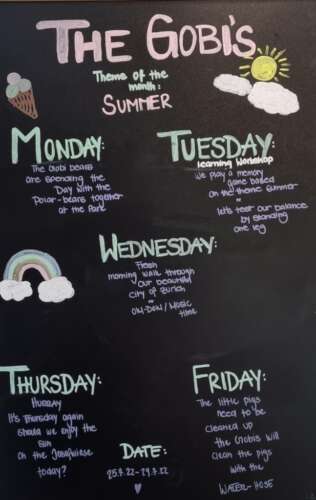 THE GOBI'S
Theme of the
month:
SUMMER
MONDAY:
The Gobi bears
are spending the
Day with the
Polar-bears together
at the Park
TUESDAY:
Learning Workshop
We play a memory
game based
on the theme summer
Let's test our balance
by standing
one leg
WEDNESDAY:
Fresh
morning walk through
our beautiful
city of Zurich
OM-DOM / Music
time
THURSDAY:
Hurray
It's Thursday again
Should we enjoy the
Sun
on the Josefwiese
today?
FRIDAY:
The little pigs
need to be
cleaned up
the Gobis will
clean the pigs
with the
WATER-HOSE
DATE:
25.7.22-29.7.22